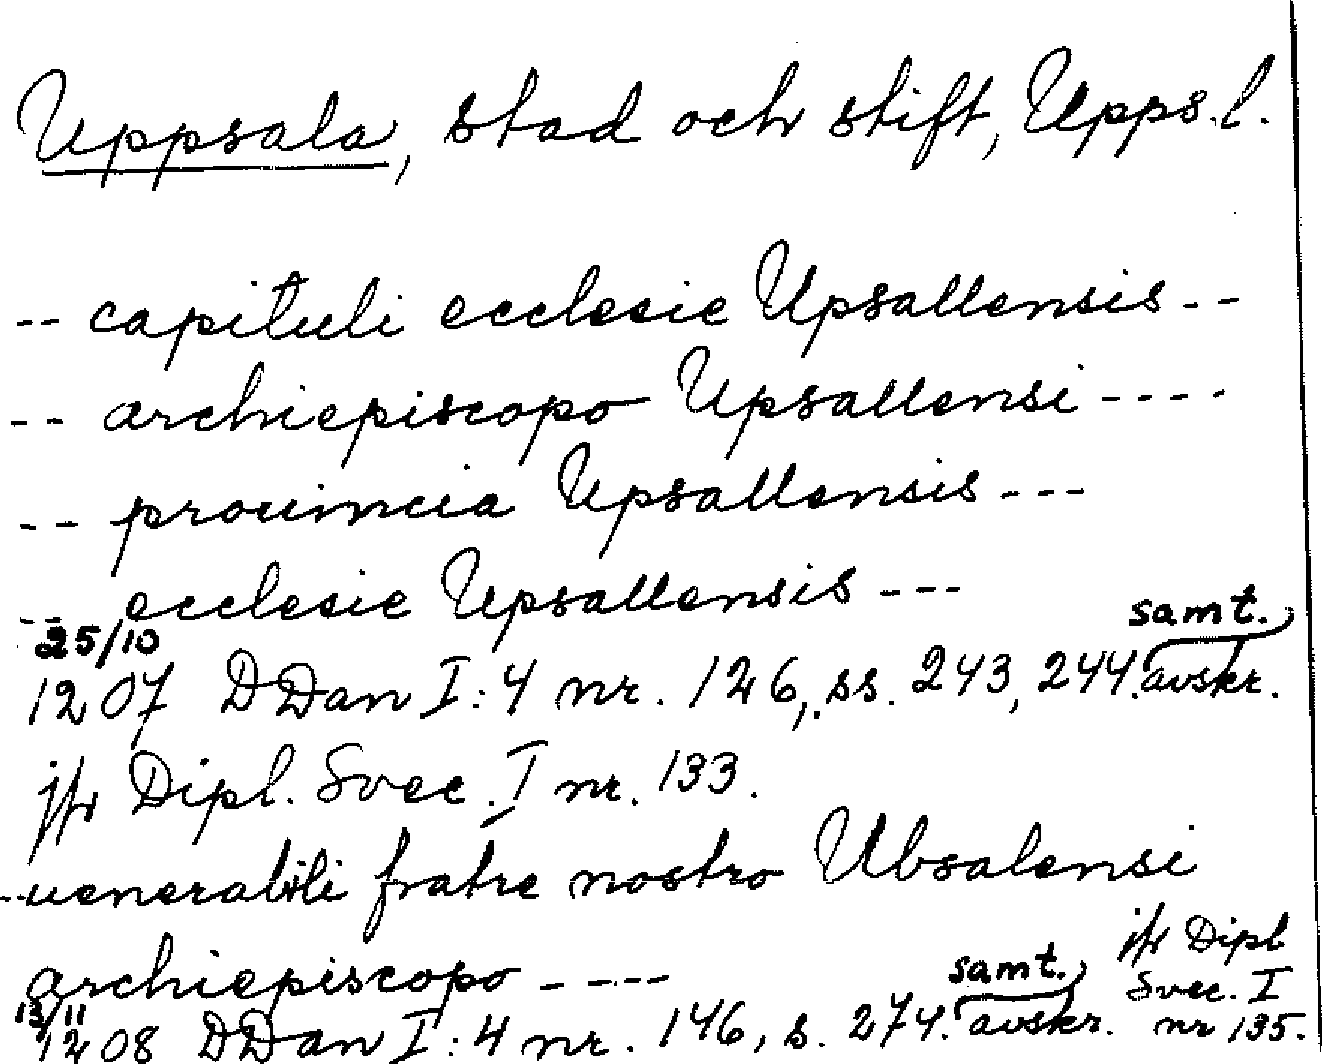 Uppsala, stad och stift, Upps.l.
-- capituli ecclesie Upsallensis --
-- archiepiscopo Upsallensi ----
-- prouincia Upsallensis ---
-- ecclesie Upsallensis ---
25/10 samt.
1207 DDan I:4 nr. 126, ss. 243, 244. avskr.
jfr Dipl. Svec. I nr. 133.
-- uenerabili fratre nostro Ubsalensi
archiepiscopo ----
13/11 samt. jfr Dipl Svec. I nr 135.
1208 DDan I:4 nr. 146, s. 274. avskr.